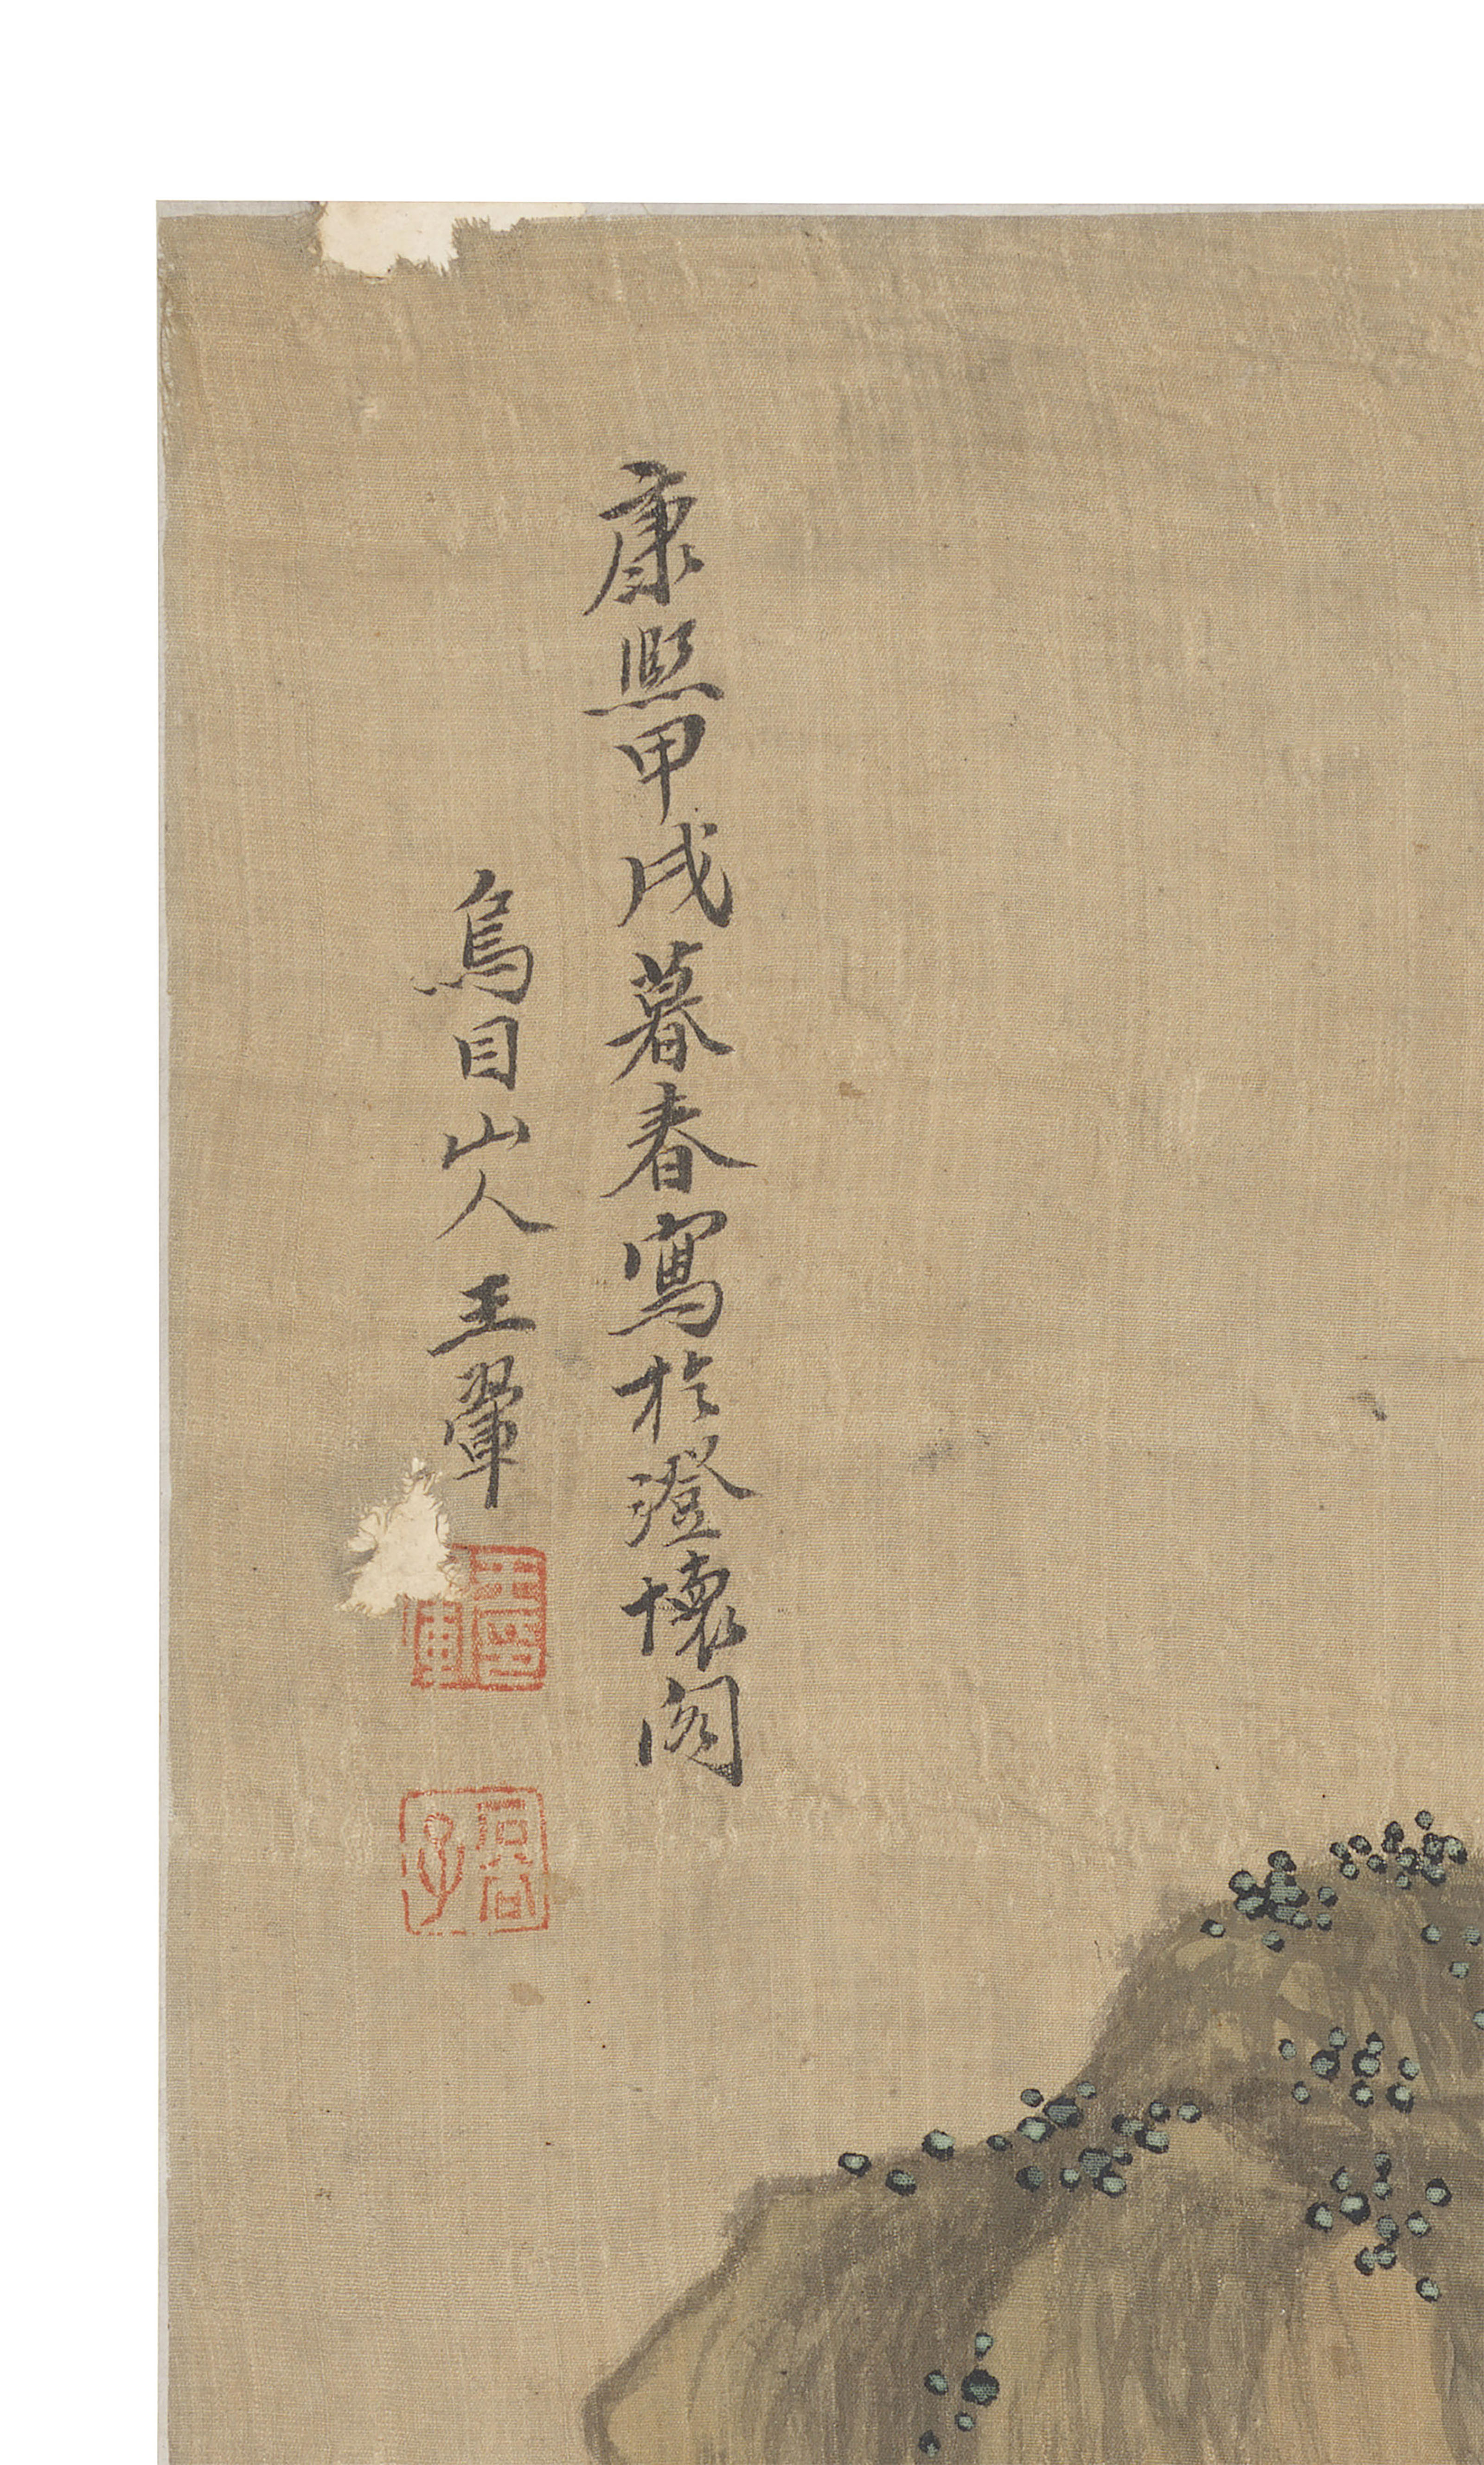 康熙甲戌暮春寫於澄懷閣
烏目山人王翬
石谷子